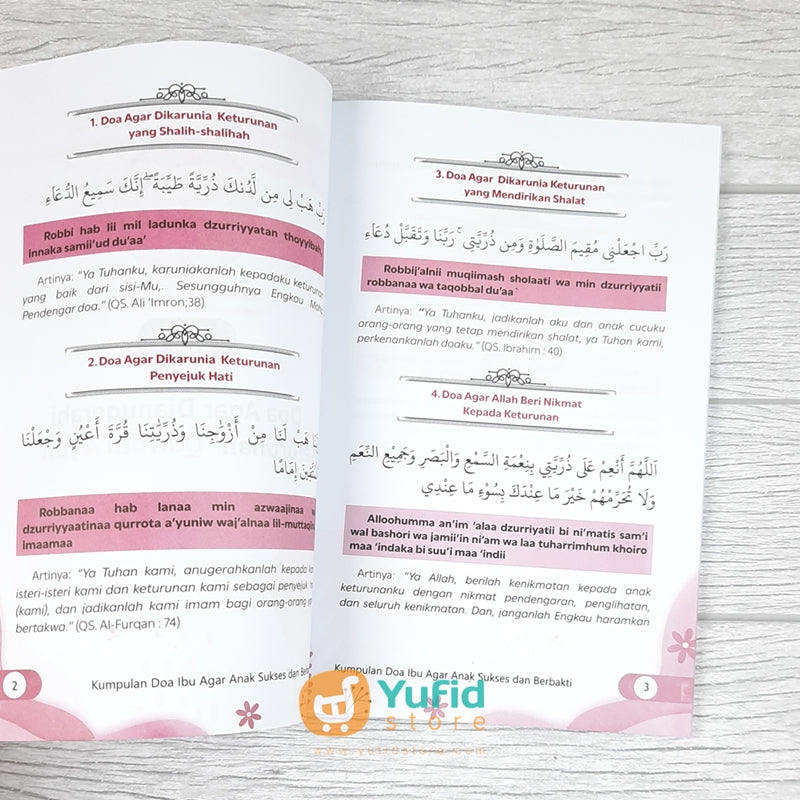 1. Doa Agar Dikarunia Keturunan
yang Shalih-shalihah
رَبِّ هَبْ لِى مِن لَّدُنكَ ذُرِّيَّةً طَيِّبَةً ۖ إِنَّكَ سَمِيعُ الدُّعَاءِ
Robbi hab lii mil ladunka dzurriyyatan thoyyibah,
innaka samii'ud du'aa'
Artinya: "Ya Tuhanku, karuniakanlah kepadaku keturunan
yang baik dari sisi-Mu,. Sesungguhnya Engkau Maha
Pendengar doa." (QS. Ali 'Imron;38)
2. Doa Agar Dikarunia Keturunan
Penyejuk Hati
هَبْ لَنَا مِنْ أَزْوَٰجِنَا وَذُرِّيَّٰتِنَا قُرَّةَ أَعْيُنٍ وَجَعَلْنَا
إِمَامًا
Robbanaa hab lanaa min azwaajinaa
dzurriyyaatinaa qurrota a'yuniw waj'alnaa lil-muttaqi
imaamaa
Artinya: "Ya Tuhan kami, anugerahkanlah kepada
isteri-isteri kami dan keturunan kami sebagai penyejuk
(kami), dan jadikanlah kami imam bagi orang-orang
bertakwa." (QS. Al-Furqan : 74)
2
Kumpulan Doa Ibu Agar Anak Sukses dan
3. Doa Agar Dikarunia Keturunan
yang Mendirikan Shalat
رَبِّ اجْعَلْنِى مُقِيمَ الصَّلَوٰةِ وَمِن ذُرِّيَّتِى ۚ رَبَّنَا وَتَقَبَّلْ دُعَاءِ
Robbij'alnii muqiimash sholaati wa min dzurriyyatii
robbanaa wa taqobbal du'aa`
Artinya: "Ya Tuhanku, jadikanlah aku dan anak cucuku
orang-orang yang tetap mendirikan shalat, ya Tuhan kami,
perkenankanlah doaku." (QS. Ibrahim : 40)
4. Doa Agar Allah Beri Nikmat
Kepada Keturunan
اَللَّهُمَّ أَنْعِمْ عَلَى ذُرِّيَّتِي بِنِعْمَةِ السَّمْعِ وَالْبَصَرِ وَجَمِيْعِ النِّعَمِ
وَلَا تُحَرِّمْهُمْ خَيْرَ مَا عِنْدَكَ بِسُوْءِ مَا عِنْدِي
Alloohumma an'im 'alaa dzurriyatii bi ni'matis sam'i
wal bashori wa jamii'in ni'am wa laa tuharrimhum khoiro
maa 'indaka bi suu'i maa 'indii
Artinya: "Ya Allah, berilah kenikmatan kepada anak
keturunanku dengan nikmat pendengaran, penglihatan,
dan seluruh kenikmatan. Dan, janganlah Engkau haramkan
Kumpulan Doa Ibu Agar Anak Sukses dan Berbakti
3
Yufid
store
www.yufidstore.com